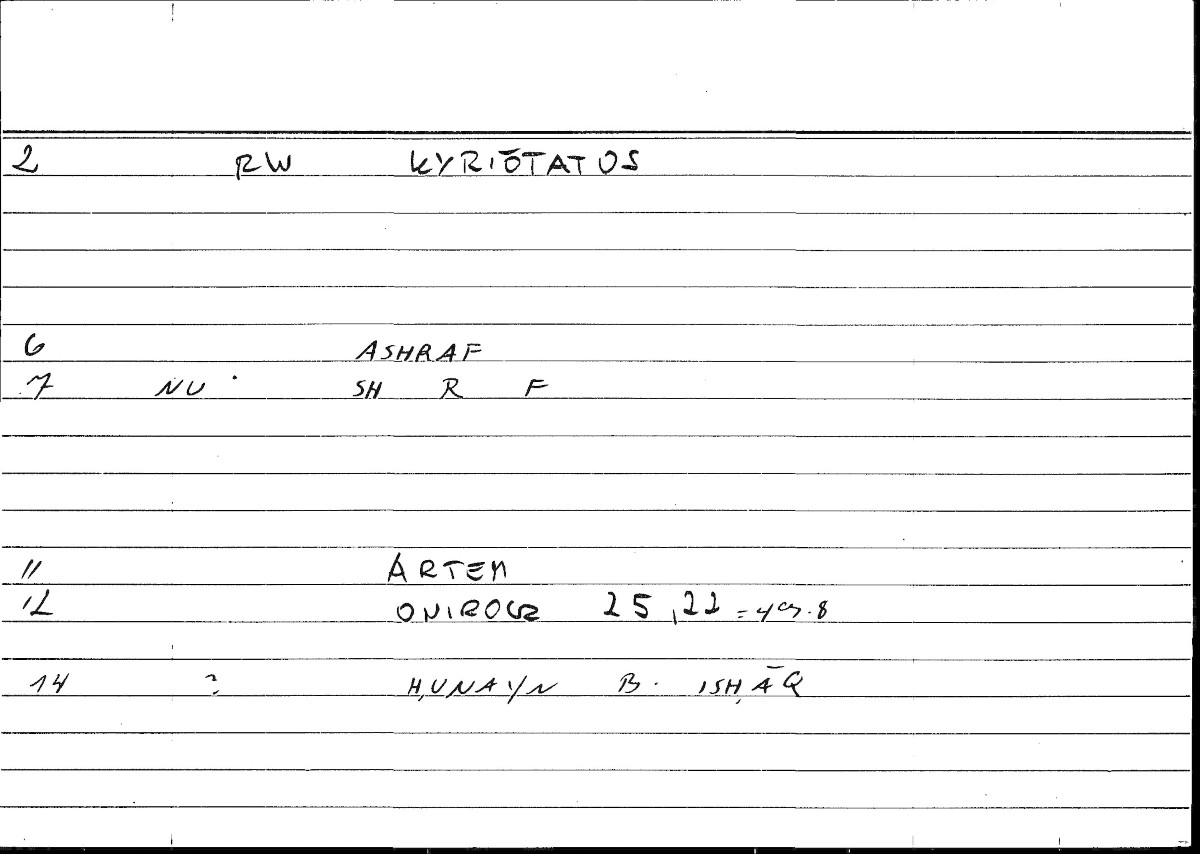 2 RW KYRIŌTATOS
6 ASHRAF
7 NU. SH R F
11 ARTEM
12 ONIROCR 25,22
14 ? ḤUNAYN B. ISḤĀQ